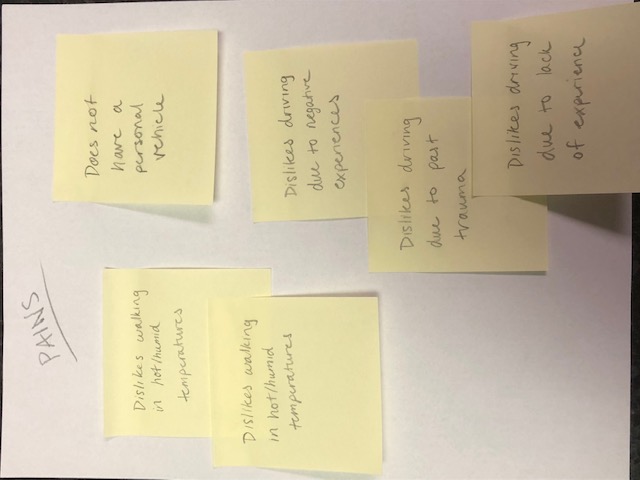 PAINS
Dislikes walking
in hot/humid
temperatures
Dislikes walking
in hot/humid
temperatures
Does not
have a
personal
vehicle
Dislikes driving
due to negative
experiences
Dislikes driving
due to past
trauma
Dislikes driving
due to lack
of experience